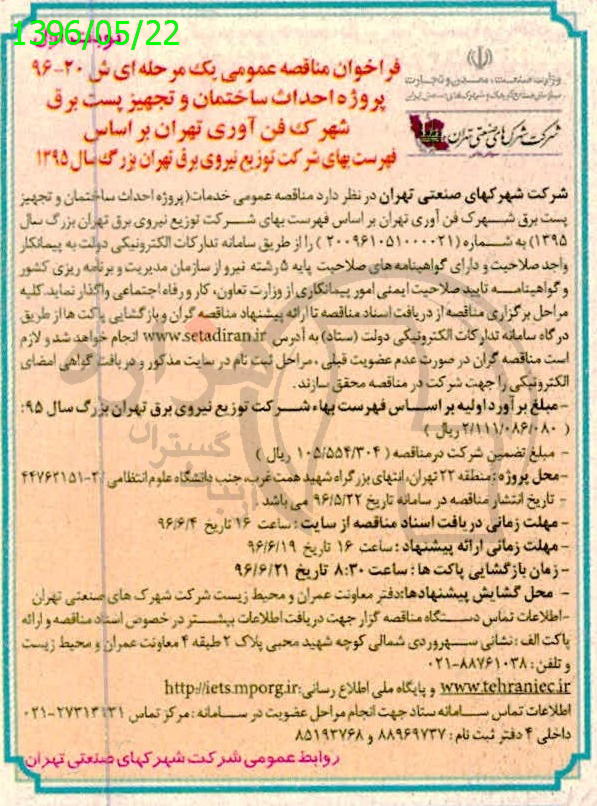 1396/05/22
نوبت اول
فراخوان مناقصه عمومی یک مرحله ای ش ۲۰-۹۶
پروژه احداث ساختمان و تجهیز پست برق
شهرک فن آوری تهران بر اساس
فهرست بهای شرکت توزیع نیروی برق تهران بزرگ سال ۱۳۹۵
وزارت صنعت، معدن و تجارت
سازمان صنایع کوچک و شهرکهای صنعتی ایران
شرکت شهرک های صنعتی تهران
شرکت شهرکهای صنعتی تهران در نظر دارد مناقصه عمومی خدمات(پروژه احداث ساختمان و تجهیز
پست برق شهرک فن آوری تهران بر اساس فهرست بهای شرکت توزیع نیروی برق تهران بزرگ سال
۱۳۹۵) به شماره (۲۰۰۹۶۱۰۵۱۰۰۰۰۲۱ ) را از طریق سامانه تدارکات الکترونیکی دولت به پیمانکار
واجد صلاحیت و دارای گواهینامه های صلاحیت پایه ۵ رشته نیرو از سازمان مدیریت و برنامه ریزی کشور
و گواهینامه تایید صلاحیت ایمنی امور پیمانکاری از وزارت تعاون، کار و رفاه اجتماعی واگذار نماید.کلیه
مراحل برگزاری مناقصه از دریافت اسناد مناقصه تا ارائه پیشنهاد مناقصه گران و بازگشایی پاکت ها از طریق
درگاه سامانه تدارکات الکترونیکی دولت (ستاد) به آدرس www.setadiran.ir انجام خواهد شد و لازم
است مناقصه گران در صورت عدم عضویت قبلی ، مراحل ثبت نام در سایت مذکور و دریافت گواهی امضای
الکترونیکی را جهت شرکت در مناقصه محقق سازند.
- مبلغ برآورد اولیه بر اساس فهرست بهاء شرکت توزیع نیروی برق تهران بزرگ سال ۹۵:
( ۲/۱۱۱/۰۸۶/۰۸۰ ریال )
- مبلغ تضمین شرکت در مناقصه ( ۱۰۵/۵۵۴/۳۰۴ ریال )
-محل پروژه : منطقه ۲۲ تهران، انتهای بزرگراه شهید همت غرب، جنب دانشگاه علوم انتظامی / ۲-۴۴۷۶۲۱۵۱
- تاریخ انتشار مناقصه در سامانه تاریخ ۹۶/۵/۲۲ می باشد .
- مهلت زمانی دریافت اسناد مناقصه از سایت : ساعت ۱۶ تاریخ ۹۶/۶/۴
- مهلت زمانی ارائه پیشنهاد : ساعت ۱۶ تاریخ ۹۶/۶/۱۹
- زمان بازگشایی پاکت ها : ساعت ۸:۳۰ تاریخ ۹۶/۶/۲۱
- محل گشایش پیشنهادها:دفتر معاونت عمران و محیط زیست شرکت شهرک های صنعتی تهران
-اطلاعات تماس دستگاه مناقصه گزار جهت دریافت اطلاعات بیشتر در خصوص اسناد مناقصه و ارائه
پاکت الف : نشانی سهروردی شمالی کوچه شهید محبی پلاک ۲ طبقه ۴ معاونت عمران و محیط زیست
و تلفن : ۸۸۷۶۱۰۳۸-۰۲۱
www.tehraniec.ir و پایگاه ملی اطلاع رسانی:http://iets.mporg.ir
اطلاعات تماس سامانه ستاد جهت انجام مراحل عضویت در سامانه : مرکز تماس ۰۲۱-۲۷۳۱۳۱۳۱
داخلی ۴ دفتر ثبت نام : ۸۸۹۶۹۷۳۷ و ۸۵۱۹۳۷۶۸
روابط عمومی شرکت شهرکهای صنعتی تهران